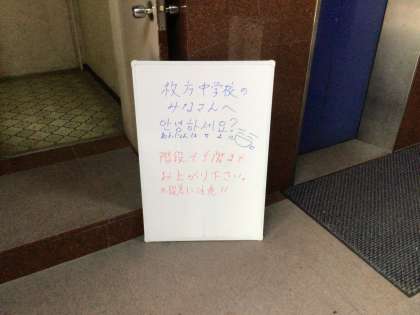 枚方中学校の
みなさんへ
안녕하세요?
あんにょんはせよ
階段で5階まで
お上がり下さい。
※段差に注意!!